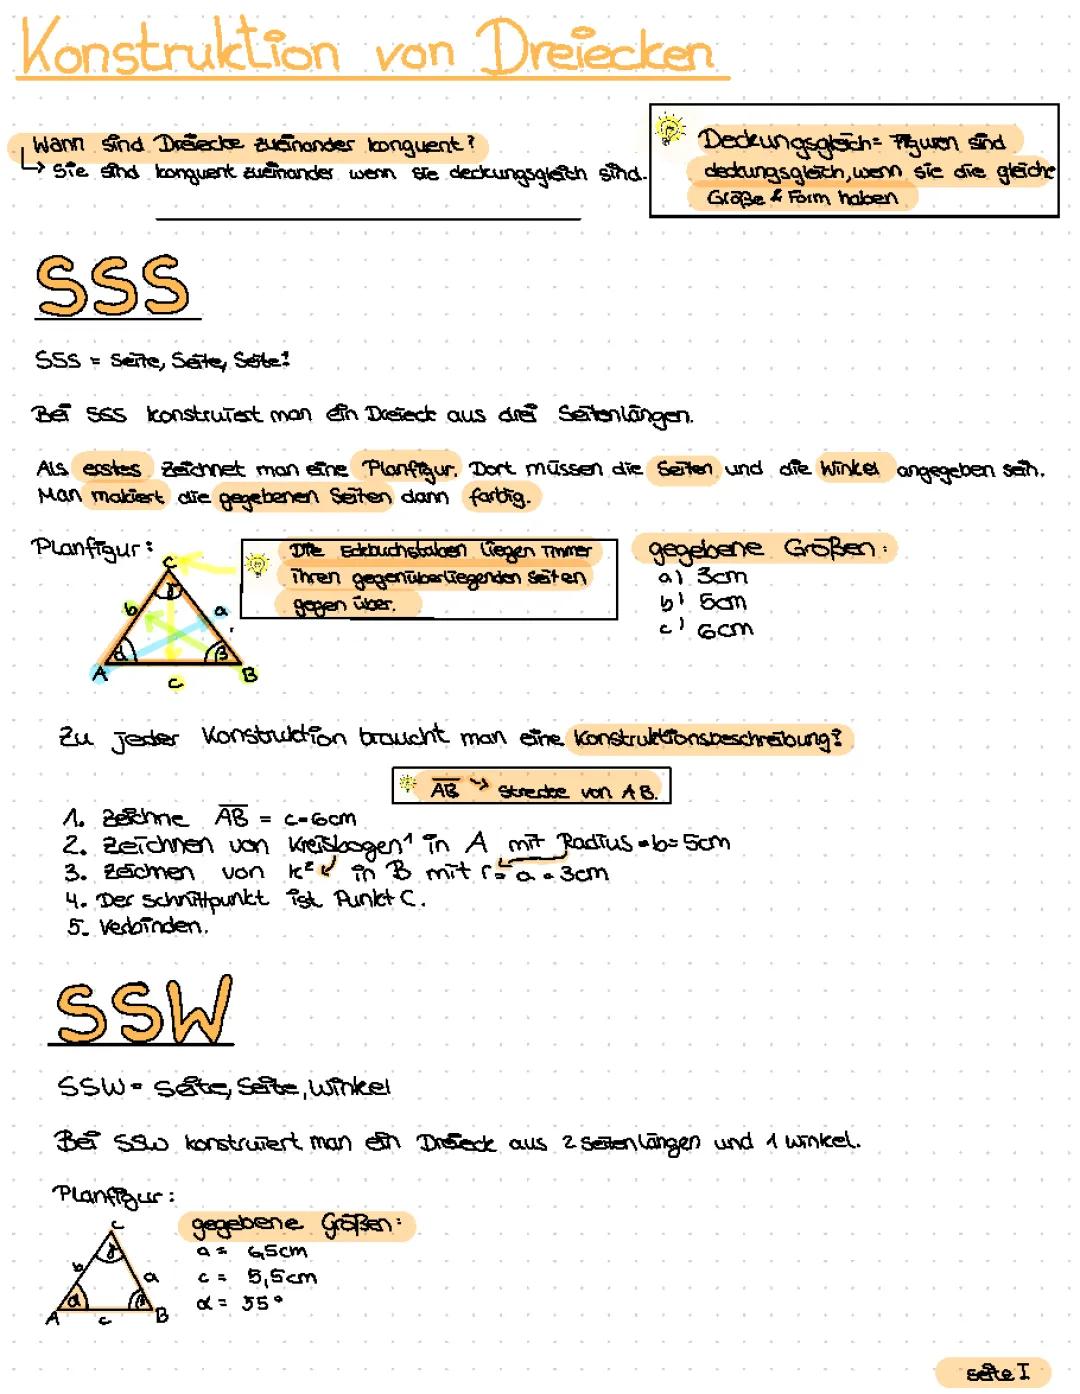 Konstruktion von Dreiecken
Wann sind Dreiecke zueinander konguent?
↳ Sie sind konguent zueinander wenn sie deckungsgleich sind.
Deckungsgleich = Figuren sind
deckungsgleich, wenn sie die gleiche
Größe & Form haben
SSS
SSS = Seite, Seite, Seite!
Bei SSS konstruiert man ein Dreieck aus drei Seitenlängen.
Als erstes zeichnet man eine Planfigur. Dort müssen die Seiten und die Winkel angegeben sein.
Man makiert die gegebenen Seiten dann farbig.
Planfigur:
C
γ
b
a
α
β
A
c
B
Die Eckbuchstaben liegen immer
ihren gegenüberliegenden Seiten
gegen über.
gegebene Größen:
a) 3cm
b) 5cm
c) 6cm
Zu jeder Konstruktion braucht man eine Konstruktionsbeschreibung!
AB ↪ Strecke von AB.
1. Zeichne AB = c=6cm
2. Zeichnen von Kreisbogen¹ in A mit Radius = b= 5cm
3. Zeichnen von k² in B mit r= a = 3cm
4. Der Schnittpunkt ist Punkt C.
5. Verbinden.
SSW
SSW = Seite, Seite, Winkel
Bei SSW konstruiert man ein Dreieck aus 2 Seitenlängen und 1 Winkel.
Planfigur:
C
γ
b
a
α
β
A
c
B
gegebene Größen:
a = 6,5cm
c = 5,5cm
α = 55°
Seite I